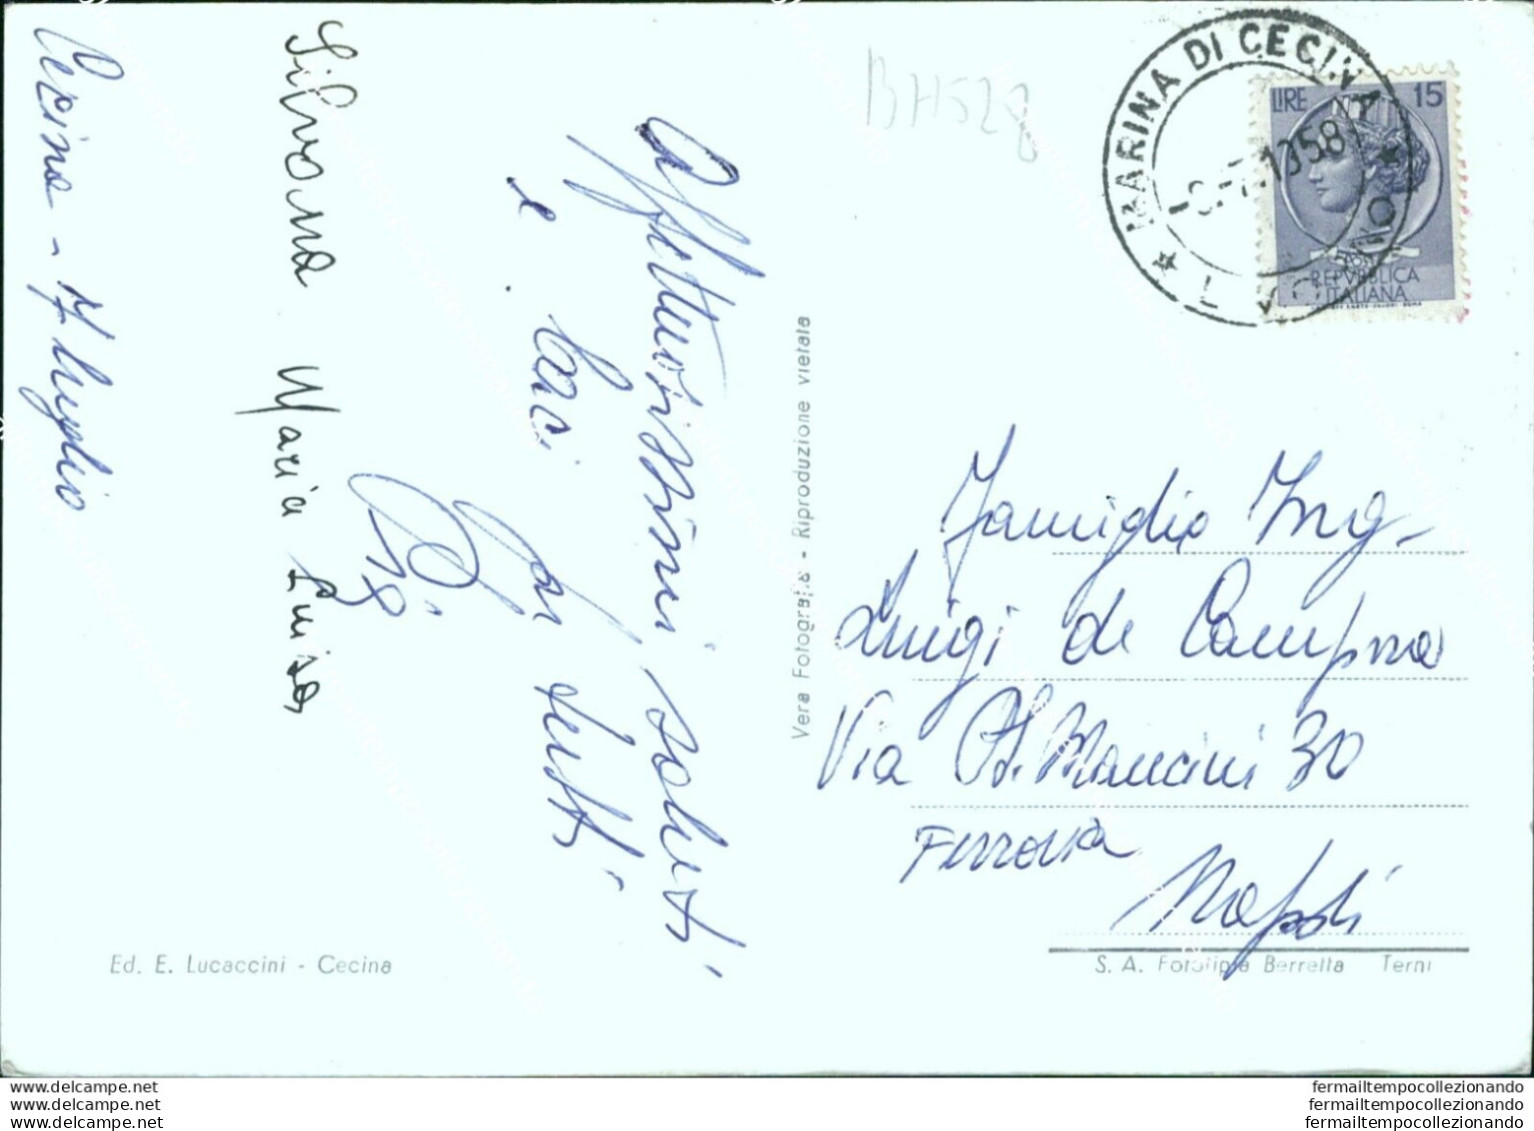 Cecina - 7 luglio
Silvana Maria Luisa
Affettuosissimi saluti
e baci
a tutti
BH528
MARINA DI CECINA
1958
LIRE 15
REPVBBLICA
ITALIANA
Vera Fotografia - Riproduzione vietata
Famiglia Ing.
Luigi de Campora
Via P. S. Mancini 30
Ferrovia
Napoli
Ed. E. Lucaccini - Cecina
S. A. Fototipia Berretta Terni
www.delcampe.net
www.delcampe.net
www.delcampe.net
fermailtempocollezionando
fermailtempocollezionando
fermailtempocollezionando